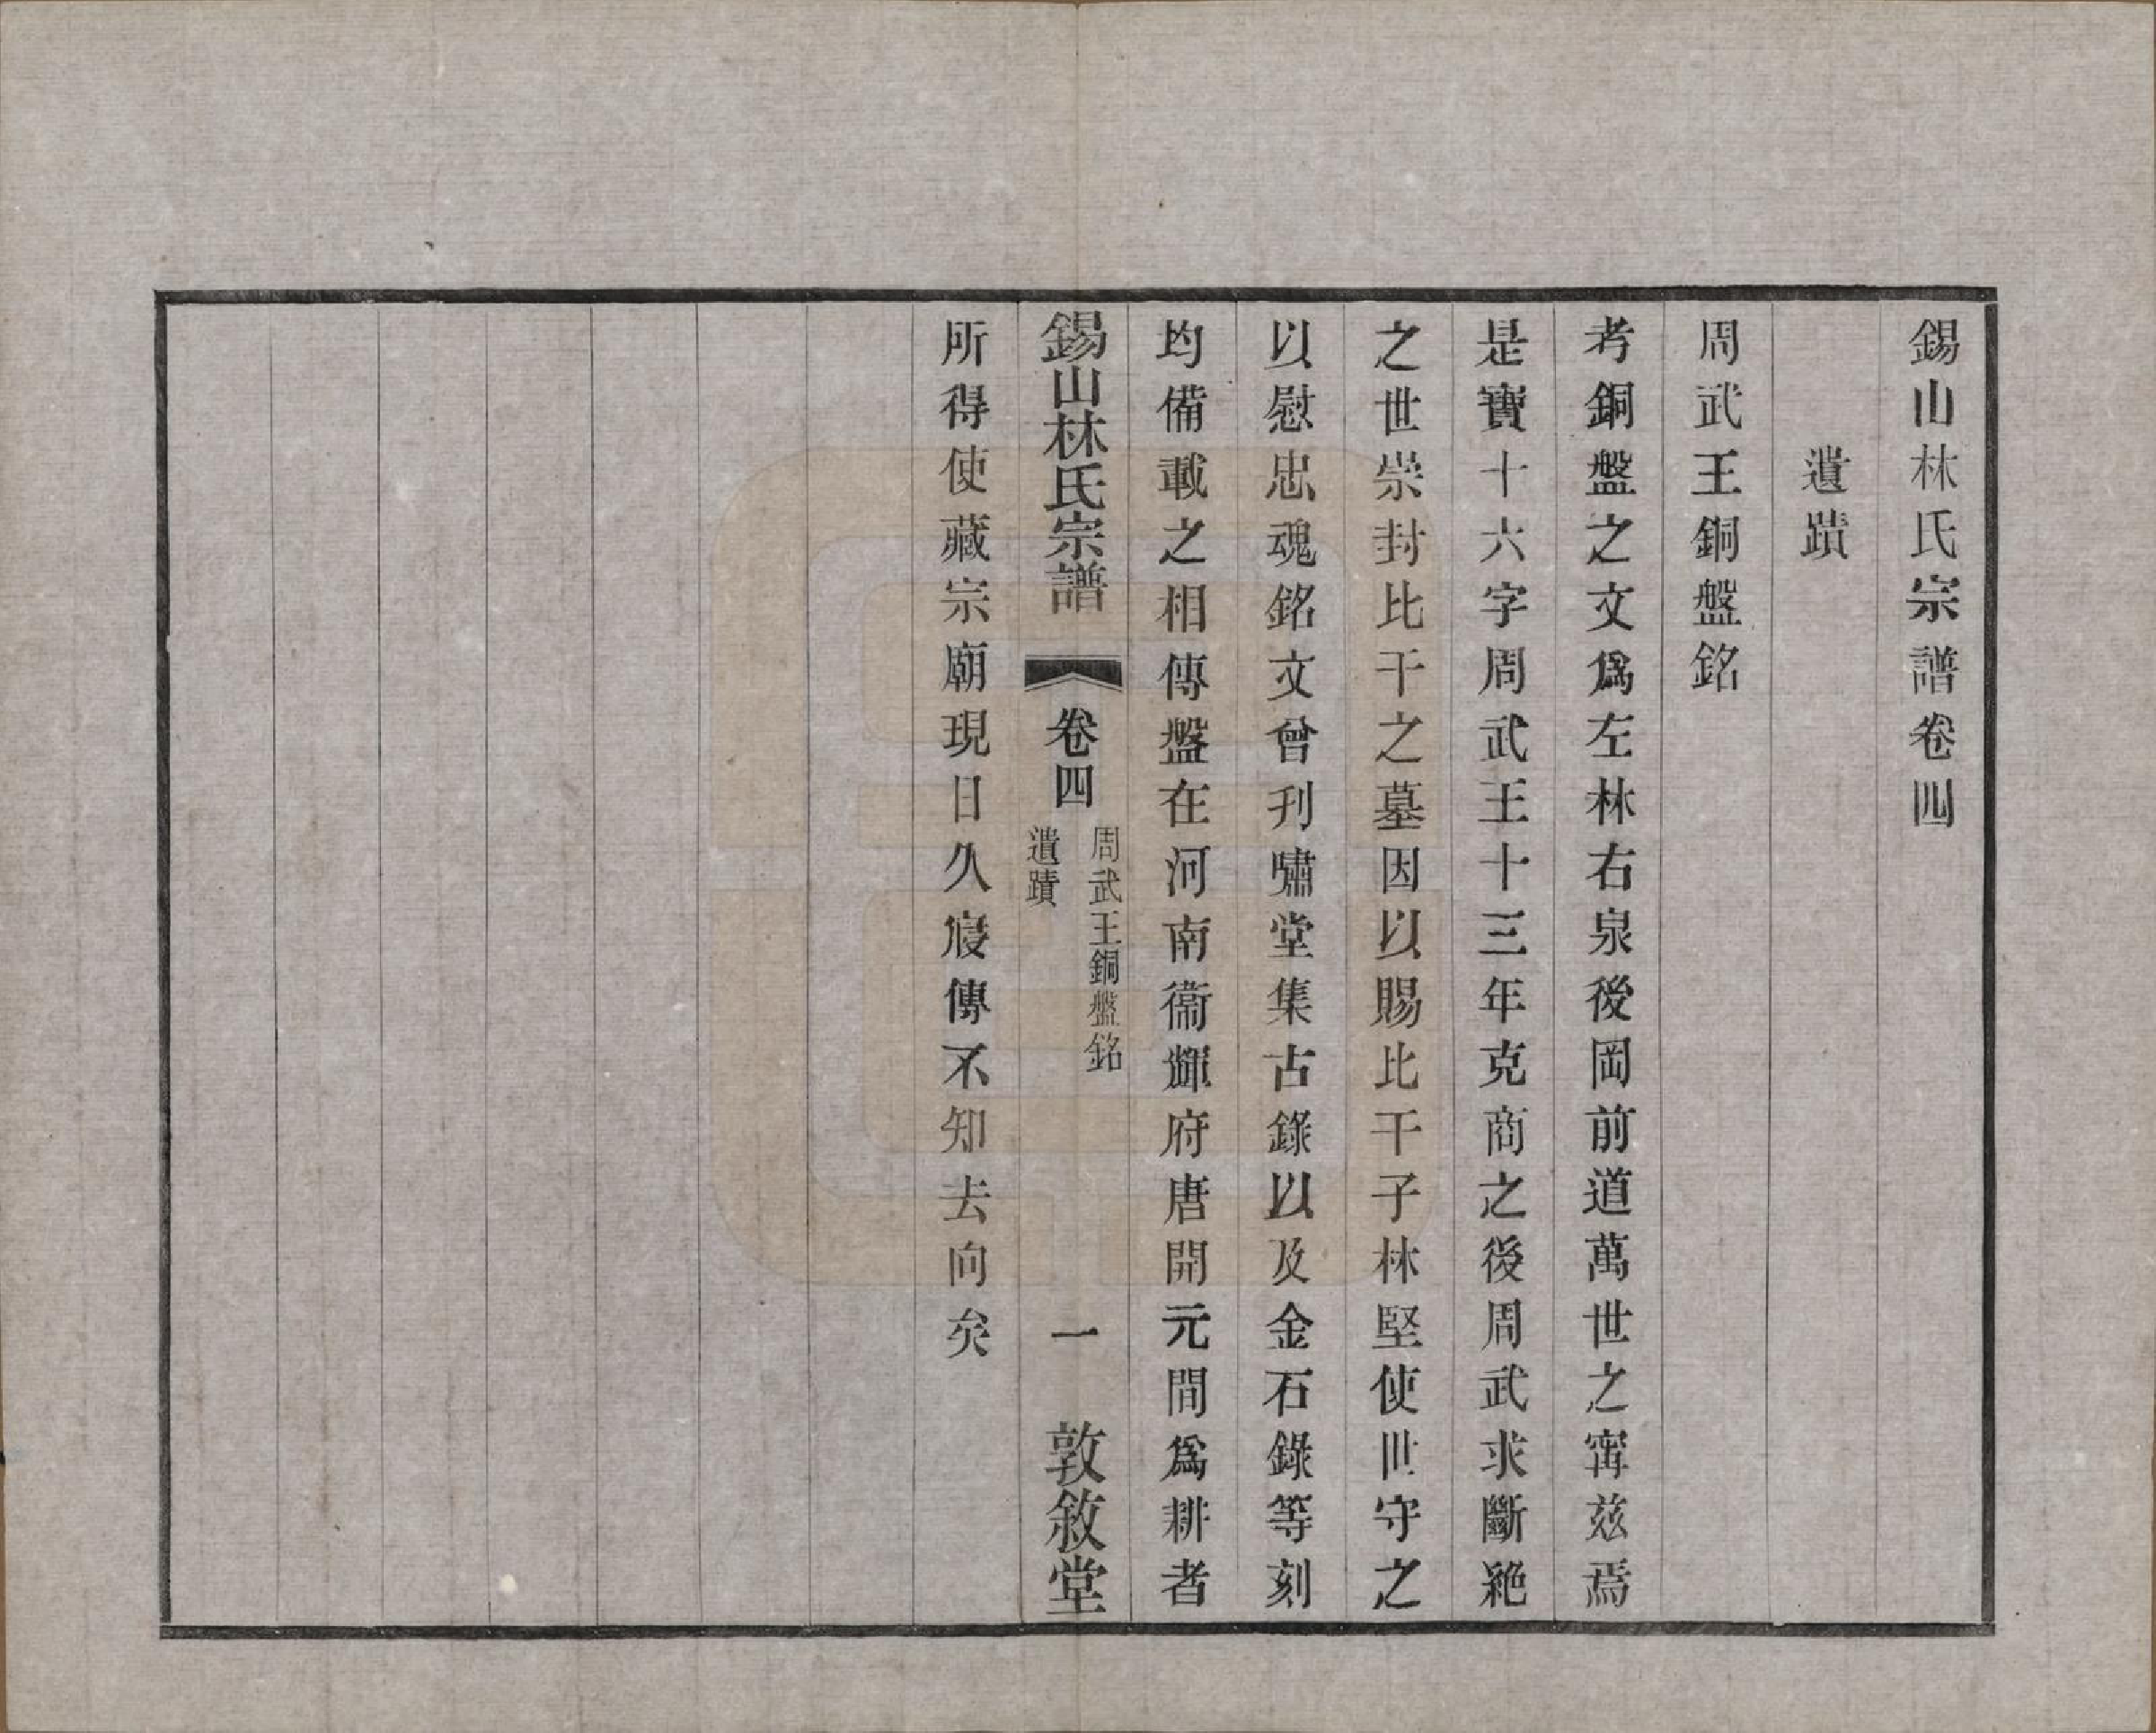 錫山林氏宗譜卷四
遺蹟
周武王銅盤銘
考銅盤之文爲左林右泉後岡前道萬世之甯茲焉
是寶十六字周武王十三年克商之後周武求斷絶
之世崇封比干之墓因以賜比干子林堅使世守之
以慰忠魂銘文曾刋嘯堂集古錄以及金石錄等刻
均備載之相傳盤在河南衞輝府唐開元間爲耕者
錫山林氏宗譜
卷四
周武王銅盤銘
遺蹟
一
敦敘堂
所得使藏宗廟現日久寢傳不知去向矣